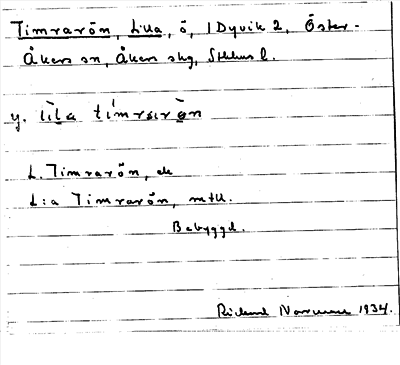 Timrarön, Lilla, ö, 1 Dyvik 2, Öster-
Åkers sn, Åkers skg, Sthlms l.
y. lìla tímrarö̀n
L. Timrarön, ek
L:a Timrarön, mtl.
Bebyggd.
Rickard 1934.